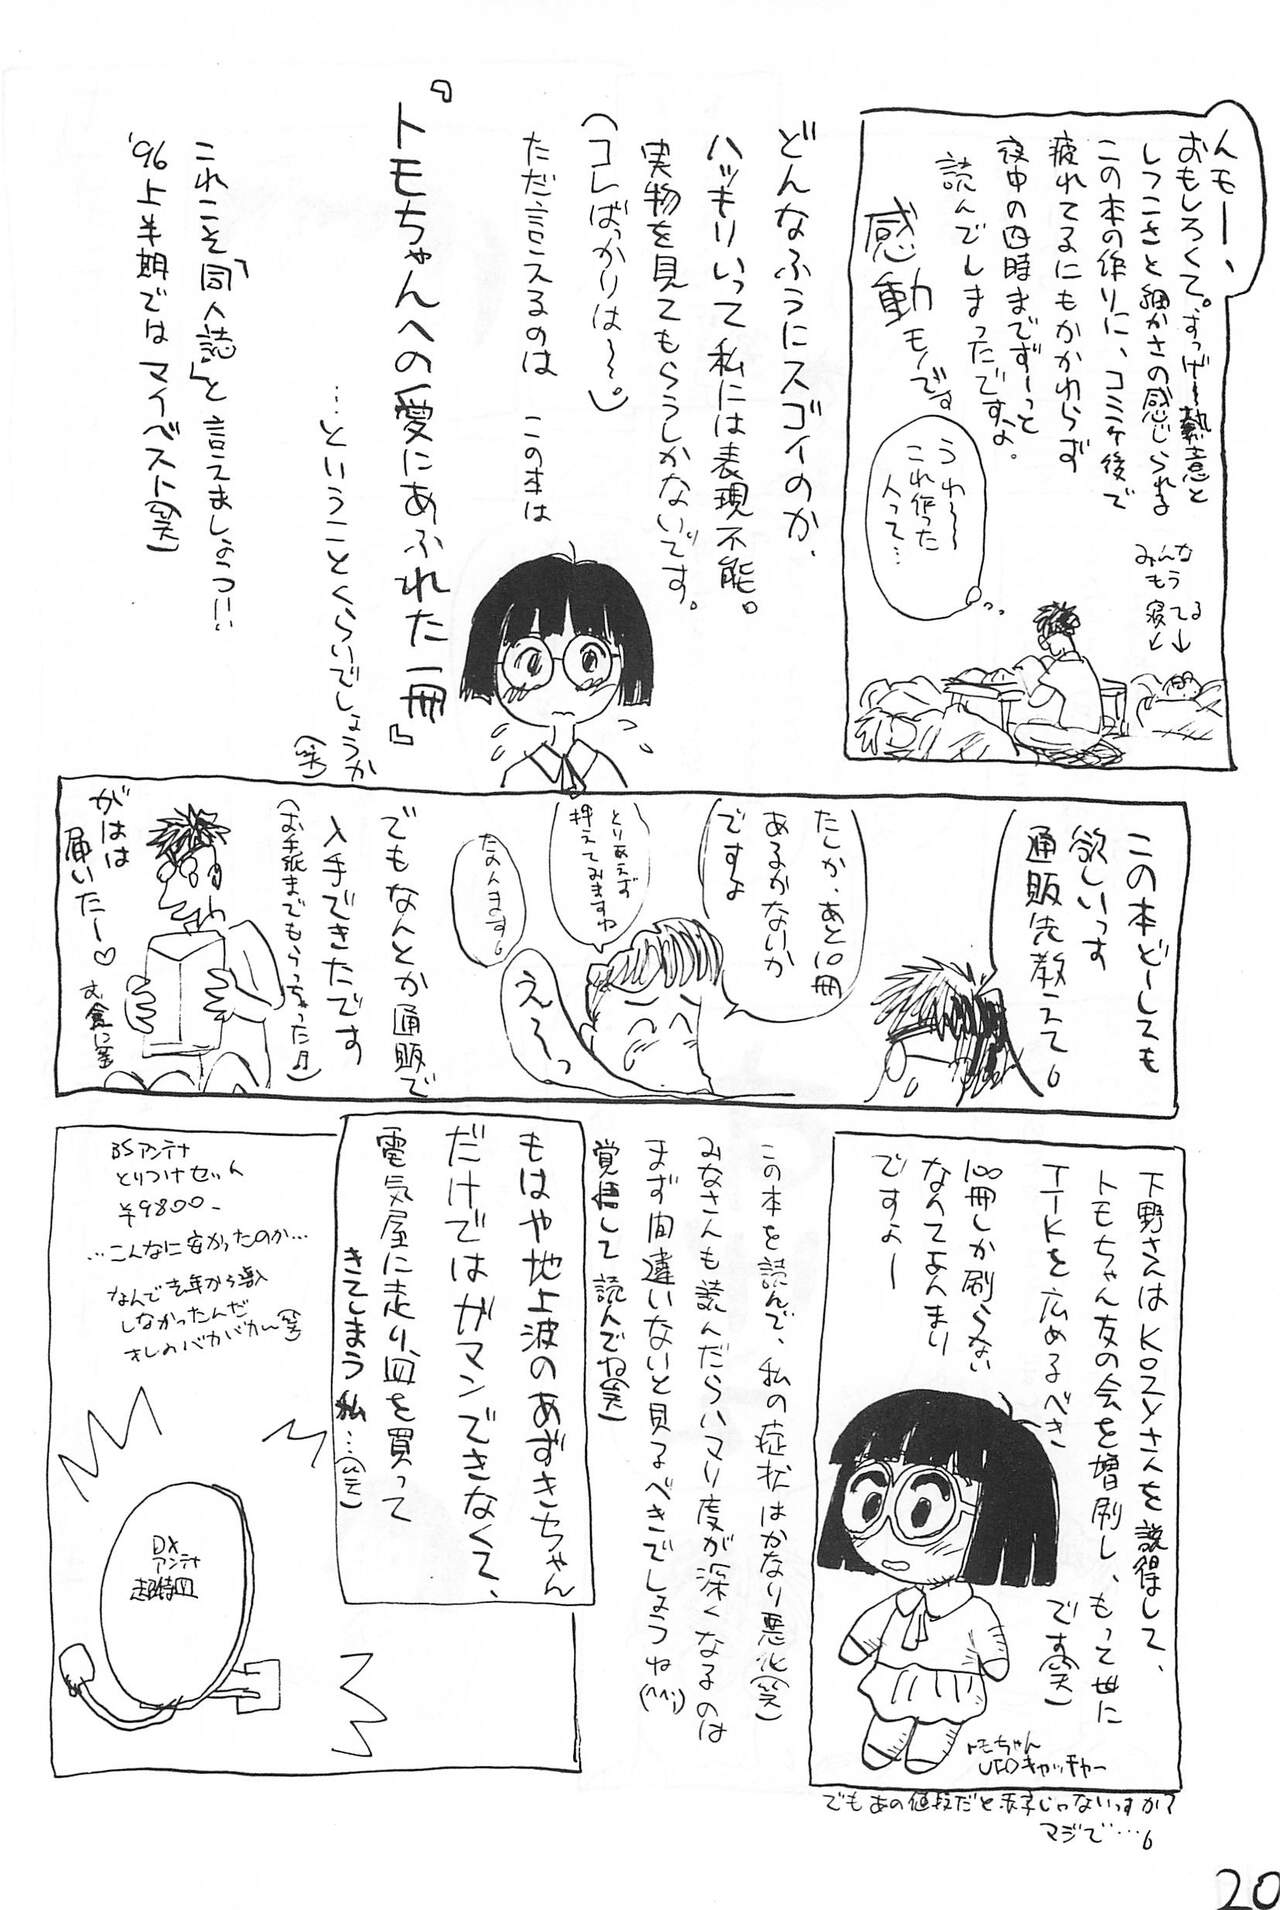 んもー、
おもしろくて。すっげー熱意と
しつこさと細かさの感じられる
この本の作りに、コミケ後で
疲れてるにもかかわらず
夜中の四時までずーっと
読んでしまったですよ。
感動モノです
うわ〜
これ作った
人って…
みんな
もう
寝てる
どんなふうにスゴイのか、
ハッキリいって私には表現不能。
実物を見てもらうしかないです。
(コレばっかりは〜。)
ただ言えるのは この本は
『トモちゃんへの愛にあふれた一冊』
…ということくらいでしょうか
(笑)
これこそ「同人誌」と言えましょうっ!!
'96上半期では マイベスト(笑)
この本どーしても
欲しいっす
通販先教えて
たしか、あと10冊
あるかないか
ですよ
とりあえず
押えてみますね
たのんます
え〜っ
でもなんとか通販で
入手できたです
(お手紙までもらっちゃった♪)
がはは
届いたー♡
下野さんはKOZYさんを説得して、
トモちゃん友の会を増刷し、もって世に
TTKを広めるべき
です(笑)
100冊しか刷らない
なんてよんまり
ですよー
トモちゃん
UFOキャッチャー
でもあの値段だと赤字じゃないっすか?
マジで…
この本を読んで、私の症状はかなり悪化(笑)
みなさんも読んだらハマり度が深くなるのは
まず間違いないと見るべきでしょうね(^^;)
覚悟して 読んでね(笑)
もはや地上波のあずきちゃん
だけではガマンできなくて、
電気屋に走り、皿を買って
きてしまう 私…(笑)
BSアンテナ
とりつけセット
¥9800-
…こんなに安かったのか…
なんで去年から導入
しなかったんだ
オレのバカバカー(笑)
DX
アンテナ
超特皿
20